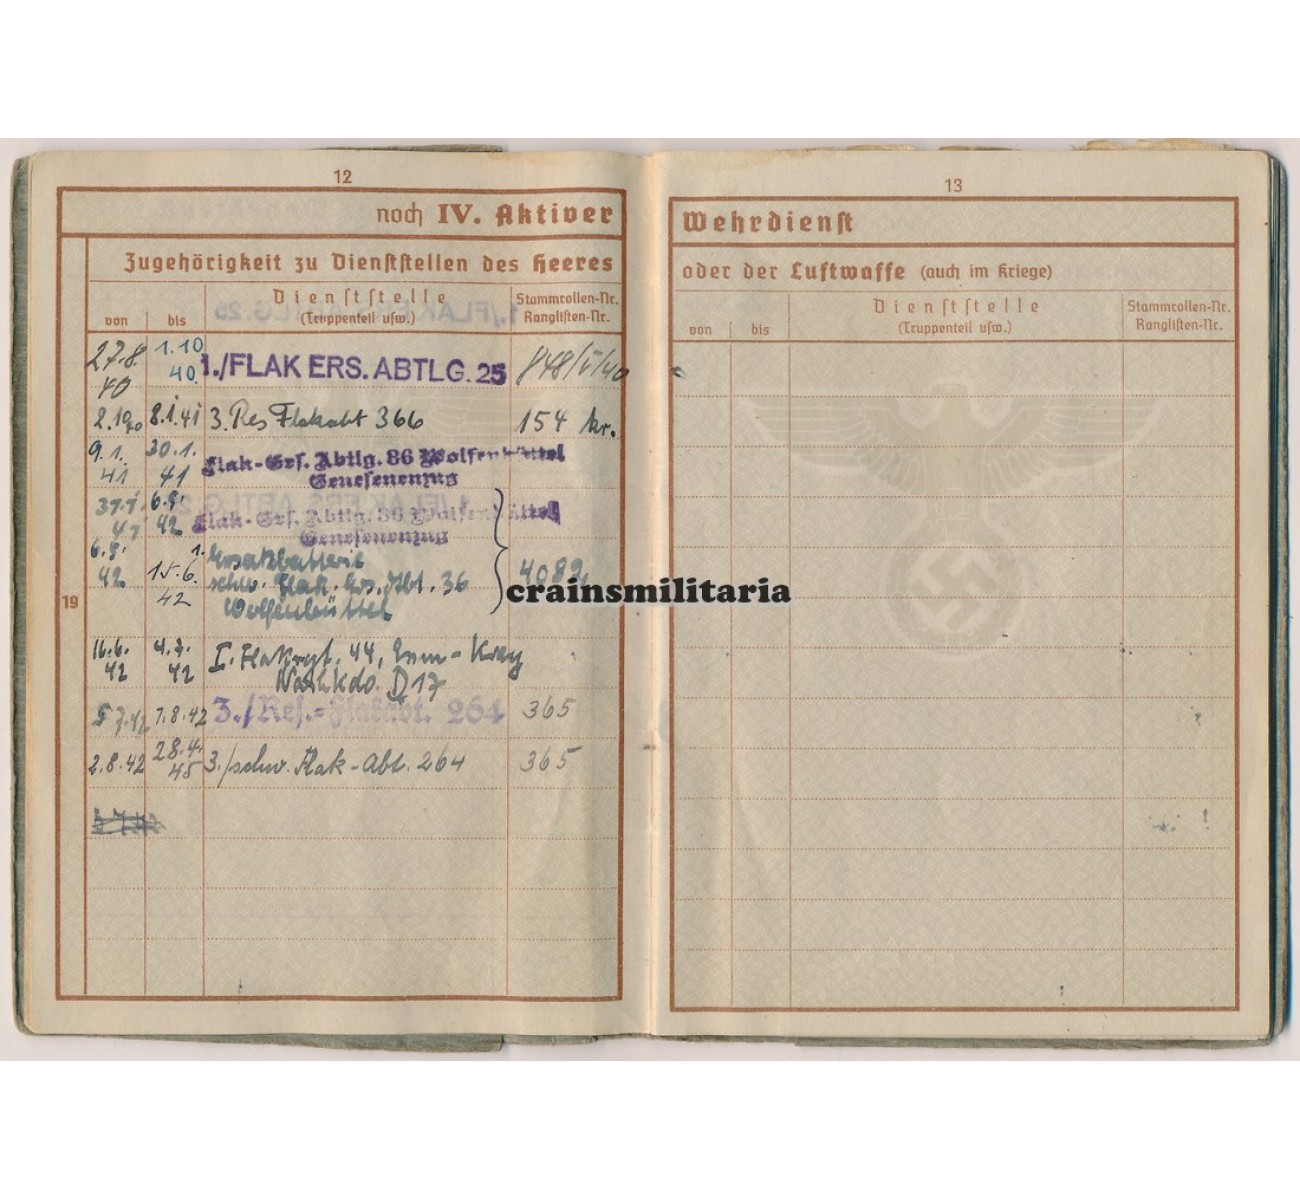 12
noch IV. Aktiver
Zugehörigkeit zu Dienststellen des Heeres
von
bis
Dienststelle
(Truppenteil usw.)
Stammrollen-Nr.
Ranglisten-Nr.
19
27.8.
40
1.10
40.
1./FLAK ERS. ABTLG. 25
848/
2.10.
40
8.1.41
3. Res Flakabt 366
154 kr.
9.1.
41
30.1.
41
Flak-Ers. Abtlg. 36 Wolfenbüttel
Genesenenzug
31.1.
41
6.
42
Flak-Ers. Abtlg. 36 Wolfenbüttel
Genesenenzug
6.
42
15.6.
42
1. Ersatzbatterie
schw. Flak. Ers. Abt. 36
Wolfenbüttel
4082
16.6.
42
4.7.
42
I. Flakrgt. 44, Essen-Kray
D 17
5.7.42
1.8.42
3./Res.-Flakabt. 264
365
2.8.42
28.4.
45
3./schw. Flak-Abt. 264
365
13
Wehrdienst
oder der Luftwaffe (auch im Kriege)
von
bis
Dienststelle
(Truppenteil usw.)
Stammrollen-Nr.
Ranglisten-Nr.
crainsmilitaria